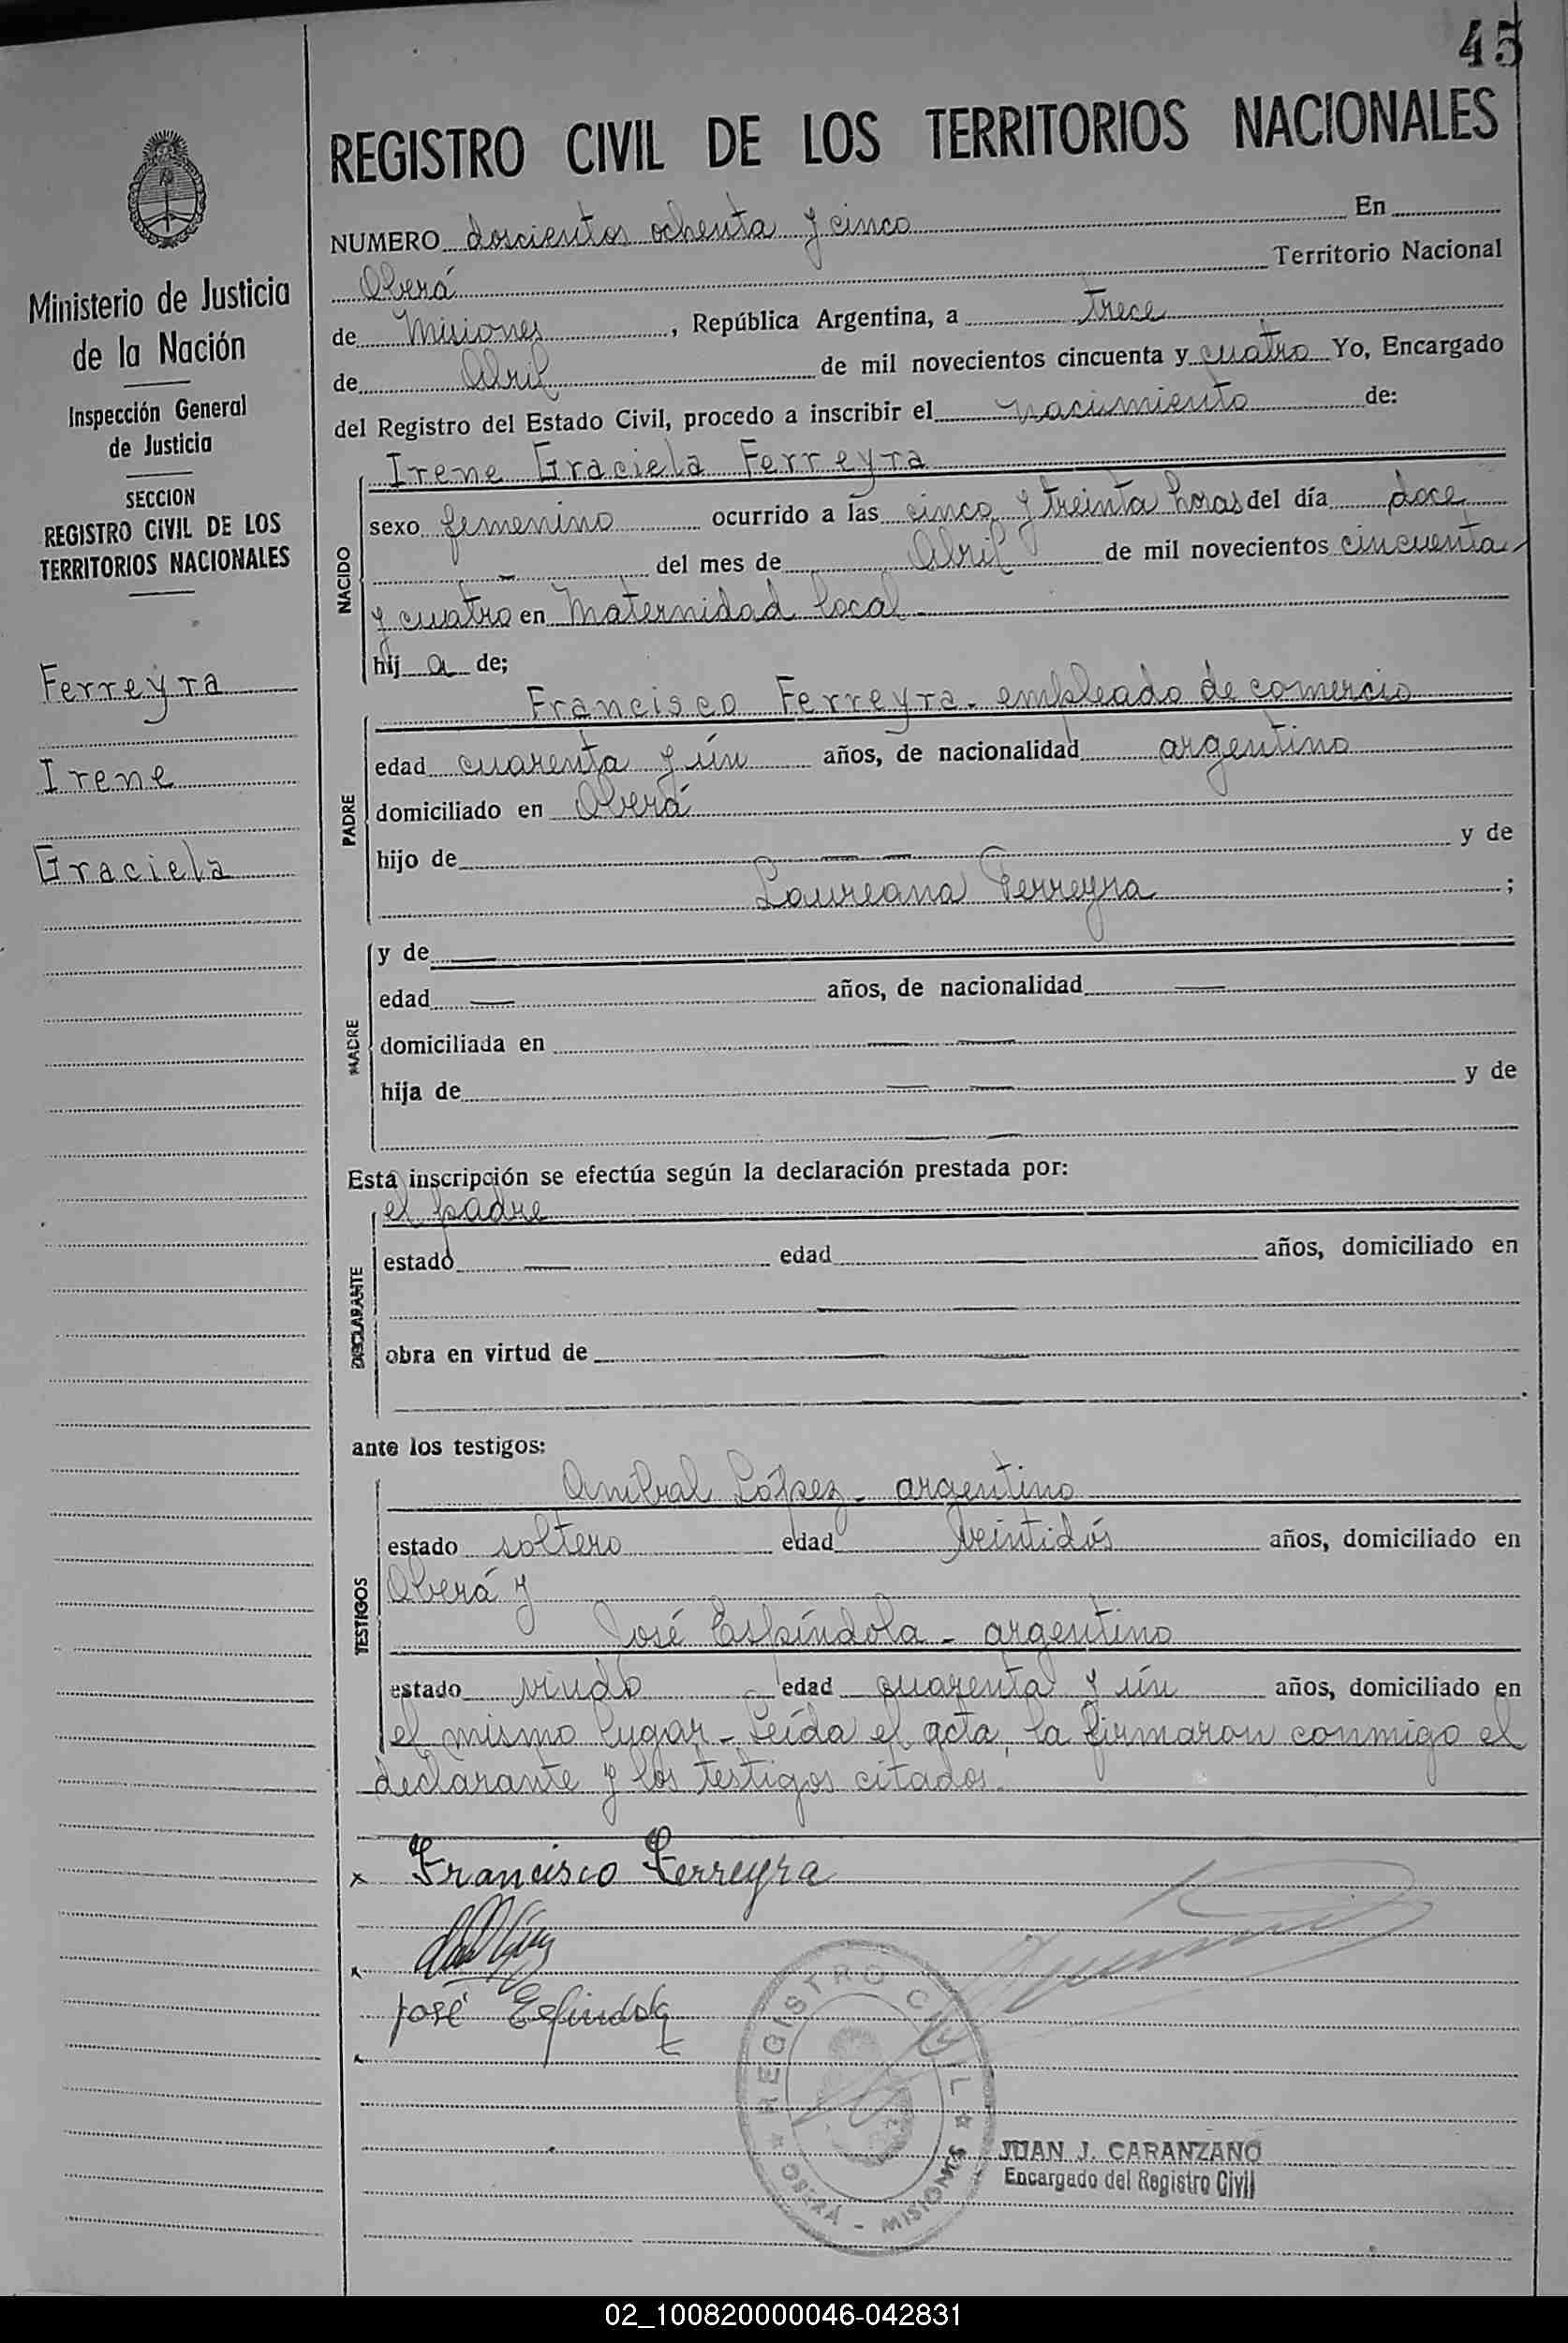 45
REGISTRO CIVIL DE LOS TERRITORIOS NACIONALES
Ministerio de Justicia
de la Nación
Inspección General
de Justicia
SECCION
REGISTRO CIVIL DE LOS
TERRITORIOS NACIONALES
Ferreyra
Irene
Graciela
NUMERO doscientos ochenta y cinco En
Oberá Territorio Nacional
de Misiones, República Argentina, a trece
de Abril de mil novecientos cincuenta y cuatro Yo, Encargado
del Registro del Estado Civil, procedo a inscribir el nacimiento de:
NACIDO
Irene Graciela Ferreyra
sexo femenino ocurrido a las cinco y treinta horas del día doce
del mes de Abril de mil novecientos cincuenta
y cuatro en Maternidad local
hij a de;
PADRE
Francisco Ferreyra - empleado de comercio
edad cuarenta y ún años, de nacionalidad argentino
domiciliado en Oberá
hijo de — — y de
Laureana Ferreyra ;
MADRE
y de —
edad — años, de nacionalidad —
domiciliada en — —
hija de — — y de
— —
Esta inscripción se efectúa según la declaración prestada por:
DECLARANTE
el padre
estado — edad — años, domiciliado en
— —
obra en virtud de — —
— — .
ante los testigos:
TESTIGOS
Aníbal López - argentino
estado soltero edad veintidós años, domiciliado en
Oberá y
José Espíndola - argentino
estado viudo edad cuarenta y ún años, domiciliado en
el mismo lugar - Leída el acta, la firmaron conmigo el
declarante y los testigos citados.
x Francisco Ferreyra
José Espíndola
REGISTRO CIVIL
OBERÁ - MISIONES
JUAN J. CARANZANO
Encargado del Registro Civil
02_100820000046-042831